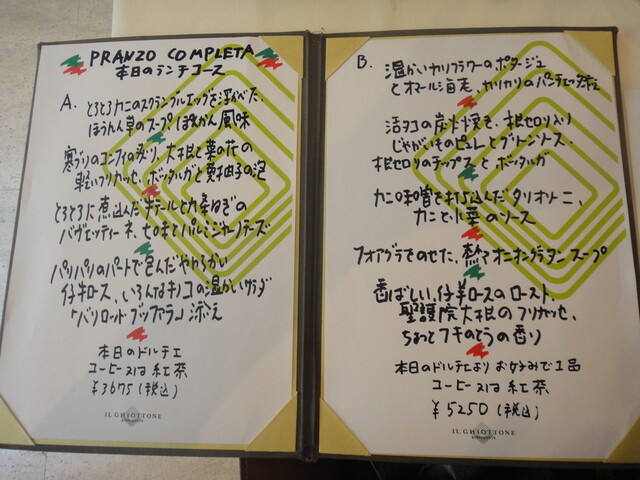 PRANZO COMPLETA
本日のランチコース
A. とろとろカニのスクランブルエッグを浮かべた、
ほうれん草のスープ ぽんかん風味
寒ブリのコンフィの炙り、大根と菜の花の
軽いフリカッセ、ボッタルガと柚子の泡
とろとろに煮込んだ牛テールと九条ねぎの
バヴェッティーネ、セロリとパルミジャーノチーズ
パリパリのパートで包んだやわらかい
仔牛ロース、いろんなキノコの温かいサラダ
「バリロットブッファラ」添え
本日のドルチェ
コーヒー又は紅茶
¥3675(税込)
IL GHIOTTONE
B. 温かいカリフラワーのポタージュ
とオマール海老、カリカリのパンチェッタ添え
活タコの炭火焼き、根セロリ入り
じゃがいものピュレとグリーンソース、
根セロリのチップスとボッタルガ
カニ味噌を打ち込んだタリオリーニ、
カニと小葉のソース
フォアグラをのせた、熱々オニオングラタンスープ
香ばしい、仔羊ロースのロースト、
聖護院大根のフリカッセ、
ちょっとフキのとうの香り
本日のドルチェより お好みで1品
コーヒー又は紅茶
¥5250(税込)
IL GHIOTTONE